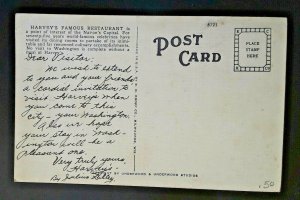 HARVEY'S FAMOUS RESTAURANT is
a point of interest of the Nation's Capital. For
seventy-five years world-famed celebrities have
visited its dining rooms to partake of its inimi-
table and far renowned culinary accomplishments.
No visit to Washington is complete without a
visit to Harvey's.
Dear Visitor:
We wish to extend
to you and your friends
a cordial invitation to
visit Harveys when
you come to this
city - your Washington.
Also we hope
your stay in Wash-
ington will be a
pleasant one.
Very truly yours,
Harveys
By Julius Lulley
BY UNDERWOOD & UNDERWOOD STUDIOS
6721
POST
CARD
PLACE
STAMP
HERE
.50